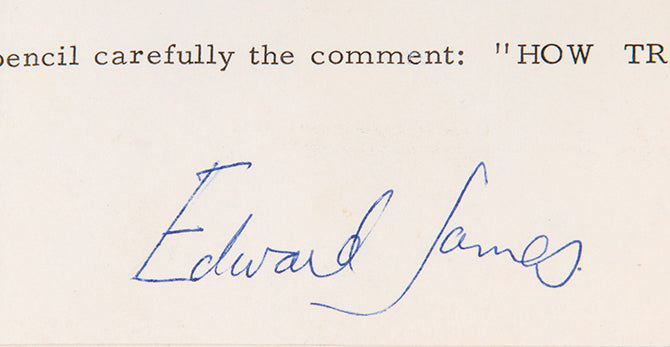 pencil carefully the comment: "HOW TR
Edward James.